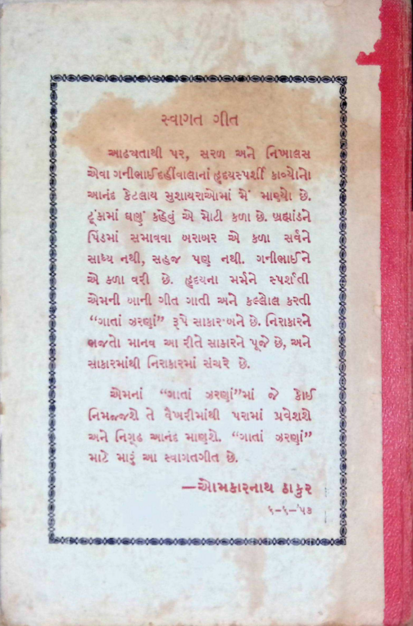 સ્વાગત ગીત
આઢ્યતાથી પર, સરળ અને નિખાલસ
એવા ગનીભાઈ દહીંવાલાનાં હૃદયસ્પર્શી કાવ્યોનો
આનંદ કેટલાય મુશાયરાઓમાં મેં માણ્યો છે.
ટૂંકામાં ઘણું કહેવું એ મોટી કળા છે. બ્રહ્માંડને
પિંડમાં સમાવવા બરાબર એ કળા સર્વને
સાધ્ય નથી, સહજ પણ નથી. ગનીભાઈને
એ કળા વરી છે. હૃદયના મર્મને સ્પર્શતી
એમની બાની ગીત ગાતી અને કલ્લોલ કરતી
“ગાતાં ઝરણાં” રૂપે સાકાર બને છે. નિરાકારને
ભજતો માનવ આ રીતે સાકારને પૂજે છે, અને
સાકારમાંથી નિરાકારમાં સંચરે છે.
એમનાં “ગાતાં ઝરણાં”માં જે કોઈ
નિમજ્જશે તે વૈખરીમાંથી પરામાં પ્રવેશશે
અને નિગૂઢ આનંદ માણશે. “ગાતાં ઝરણાં”
માટે મારું આ સ્વાગતગીત છે.
—ઓમકારનાથ ઠાકુર
૬-૬-’૫૩